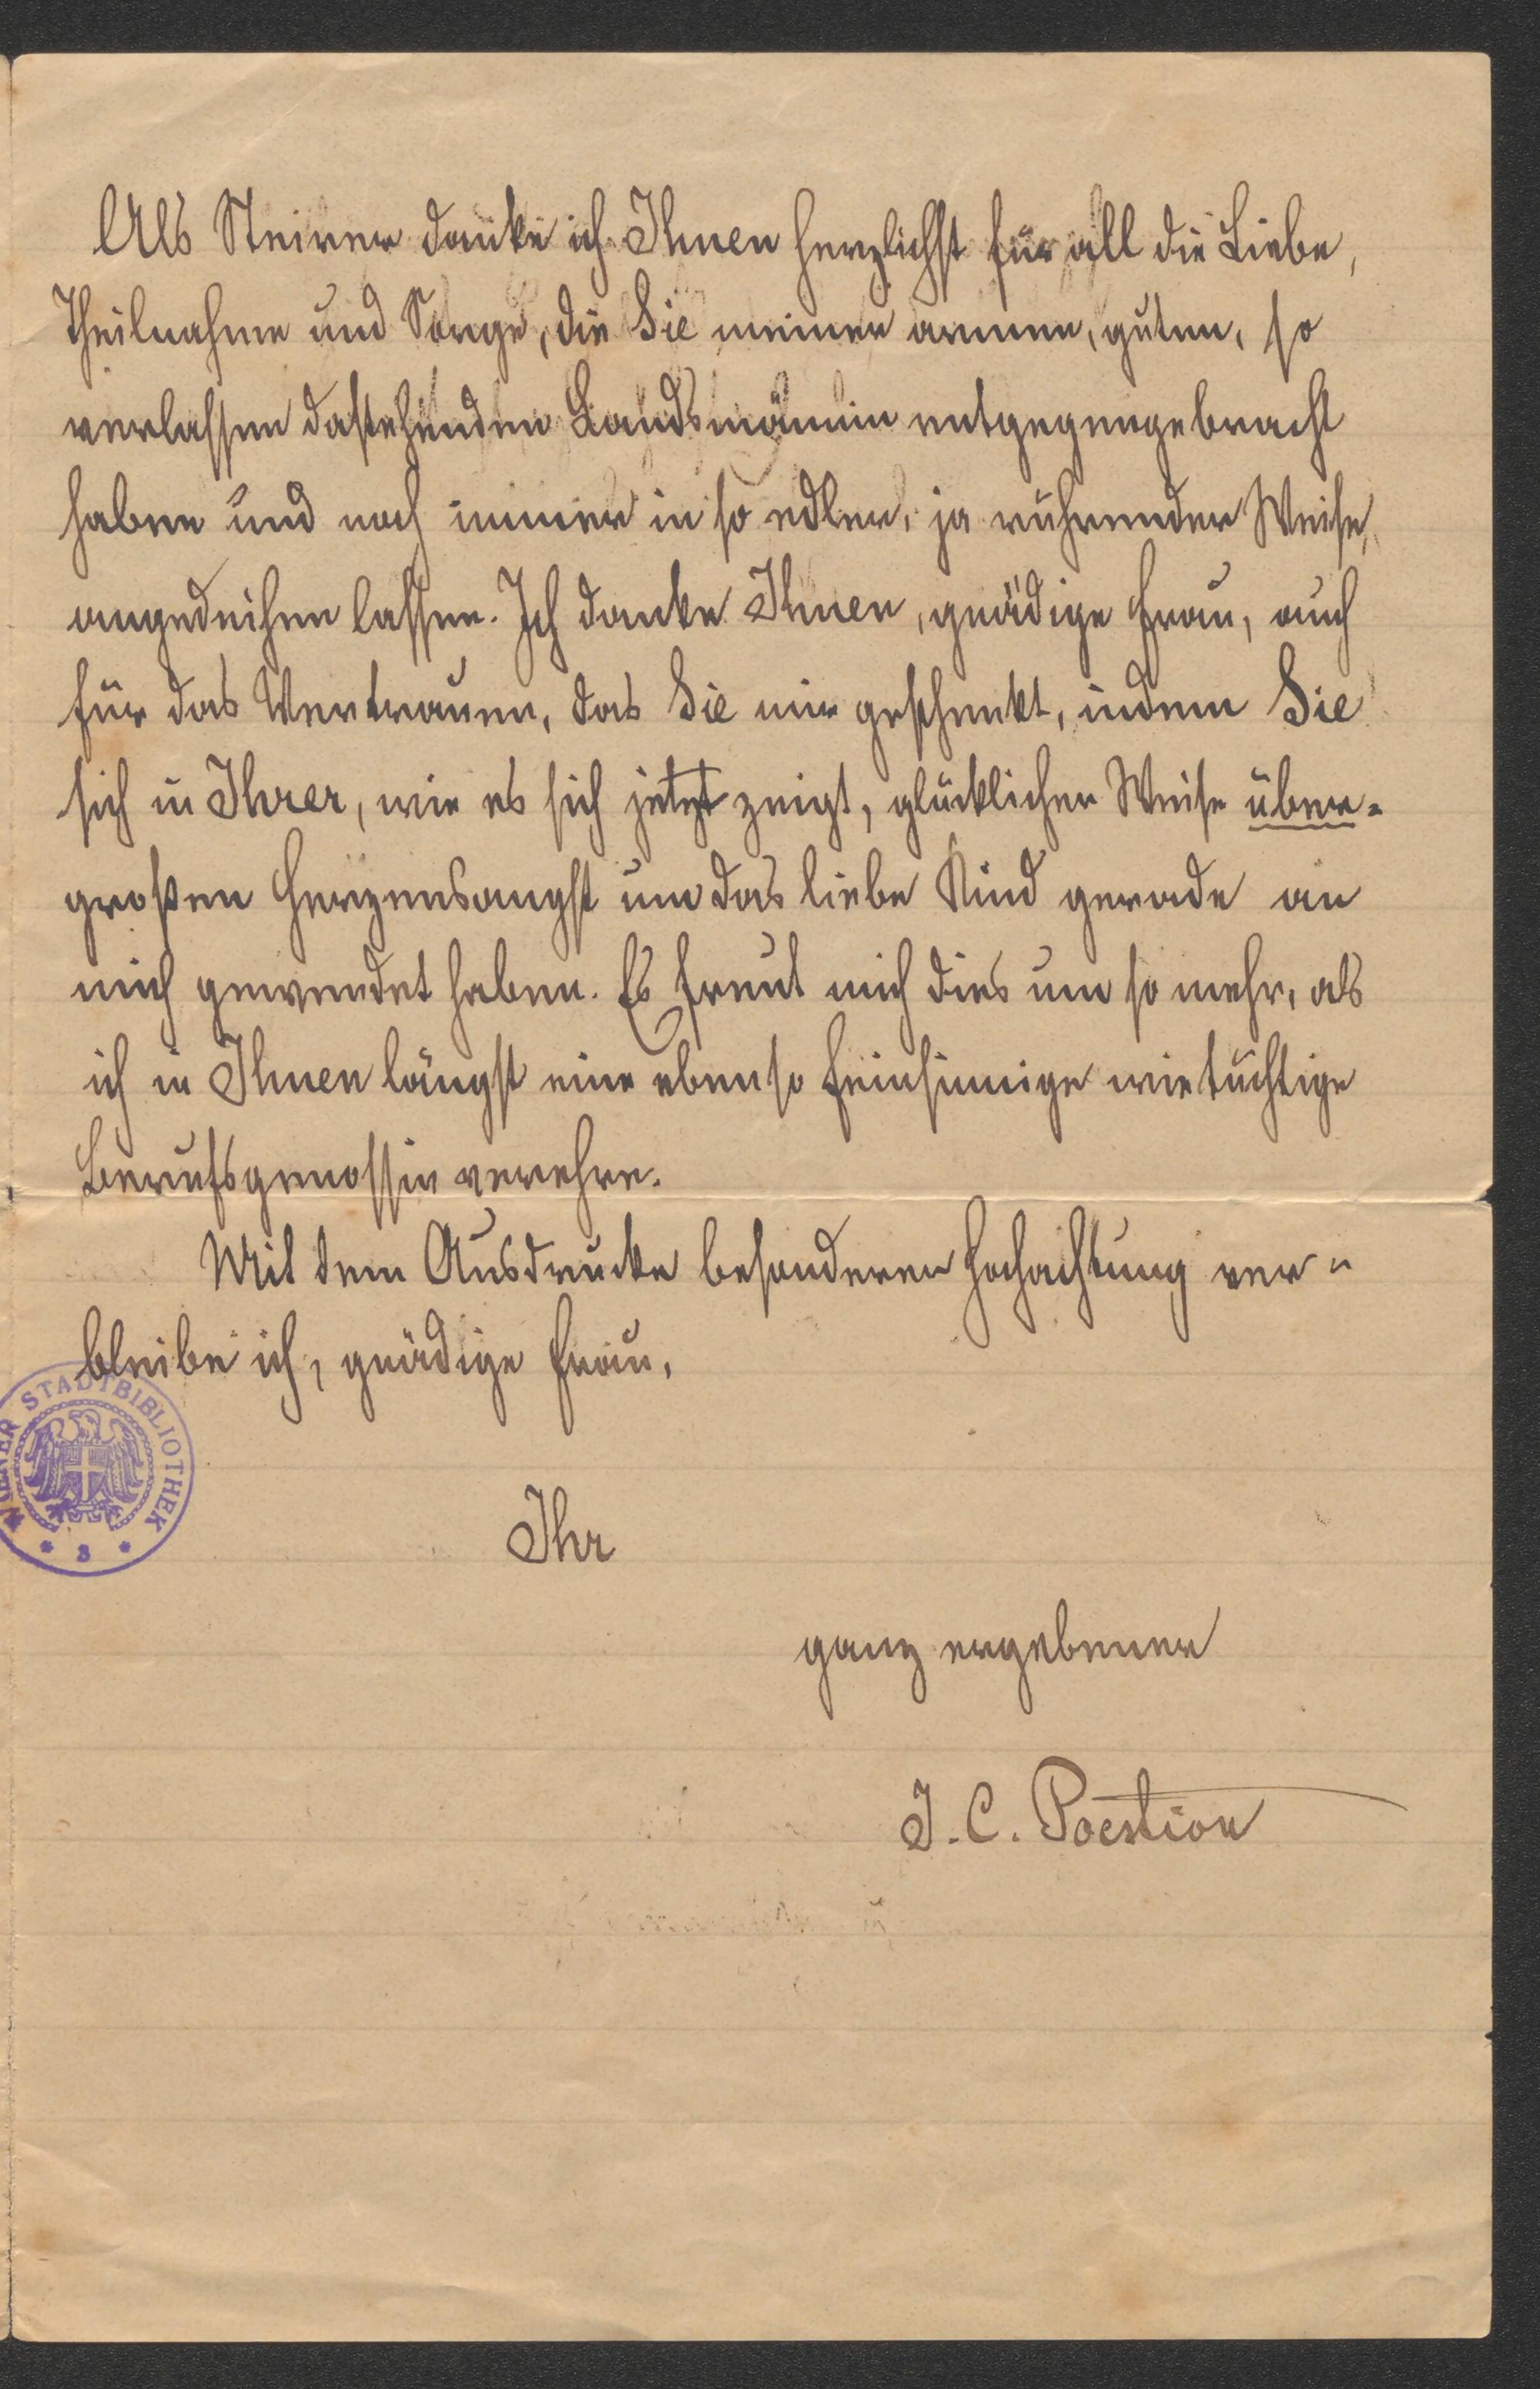 Als Steirer danke ich Ihnen herzlichst für all die Liebe,
Theilnahme und Sorge, die Sie meiner armen, guten, so
verlassen dastehenden Landsmännin entgegengebracht
haben und noch immer in so edler, ja rührender Weise,
angedeihen lassen. Ich danke Ihnen, gnädige Frau, auch
für das Vertrauen, das Sie mir geschenkt, indem Sie
sich in Ihrer, wie es sich jetzt zeigt, glücklicher Weise über=
großen Herzensangst um das liebe Kind gerade an
mich gewendet haben. Es freut mich dies um so mehr, als
ich in Ihnen längst eine ebenso feinsinnige wie tüchtige
Berufsgenossin verehre.
Mit dem Ausdrucke besonderer Hochachtung ver=
bleibe ich, gnädige Frau,
WIENER STADTBIBLIOTHEK
* 3 *
Ihr
ganz ergebener
J. C. Poestion